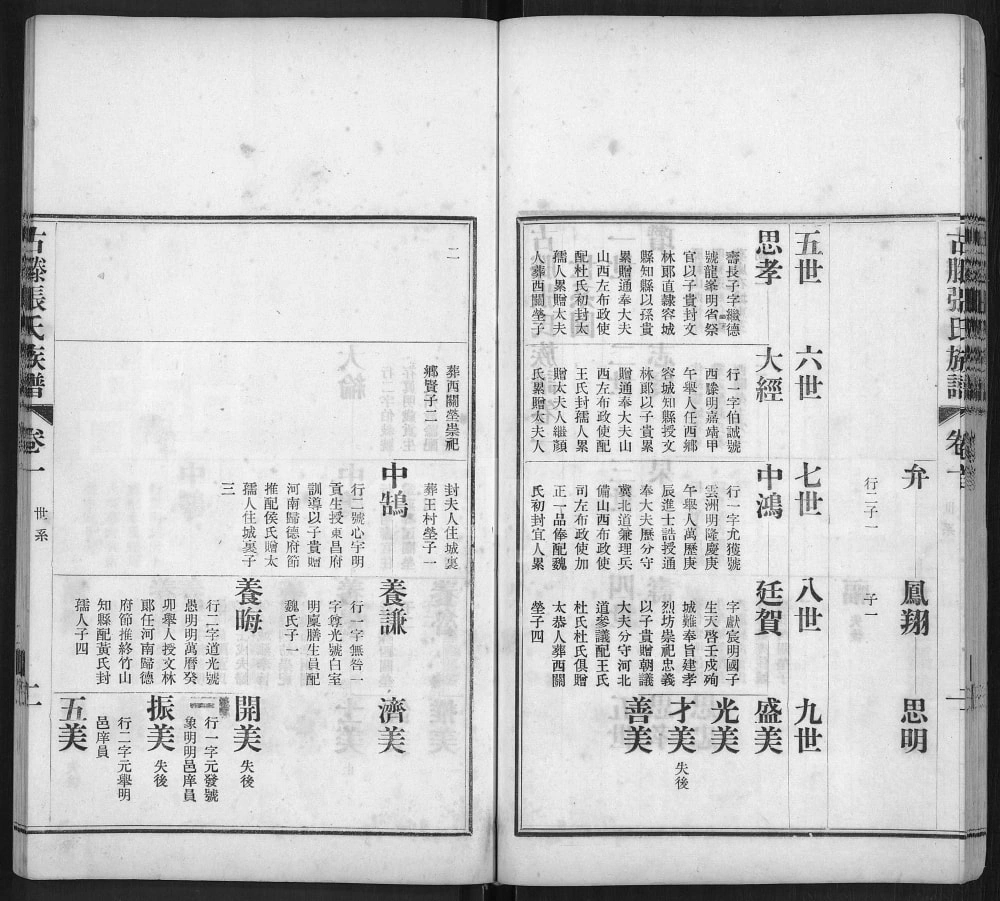 古滕張氏族譜
卷一
弁
行二子一
鳳翔
子一
思明
五世
六世
七世
八世
九世
思孝
壽長子字繼德
號龍峯明省祭
官以子貴封文
林郎直隸容城
縣知縣以孫貴
累贈通奉大夫
山西左布政使
配杜氏初封太
孺人累贈太夫
人葬西關塋子
大經
行一字伯誠號
西滕明嘉靖甲
午舉人任西鄉
容城知縣授文
林郎以子貴累
贈通奉大夫山
西左布政使配
王氏封孺人累
贈太夫人繼顏
氏累贈太夫人
中鴻
行一字尤獲號
雲洲明隆慶庚
午舉人萬歷庚
辰進士誥授通
奉大夫歷分守
冀北道兼理兵
備山西布政使
司左布政使加
正一品俸配魏
氏初封宜人累
廷賀
字獻宸明國子
生天啓壬戍殉
城難奉旨建孝
烈坊崇祀忠義
以子貴贈朝議
大夫分守河北
道參議配王氏
杜氏杜氏俱贈
太恭人葬西關
塋子四
盛美
光美
才美
失後
善美
二
葬西關塋崇祀
鄉賢子二
封夫人住城裏
葬王村塋子一
中鵠
行二號心宇明
貢生授東昌府
訓導以子貴贈
河南歸德府節
推配侯氏贈太
孺人住城裏子
三
養謙
行一字無咎一
字尊光號白室
明廩膳生員配
魏氏子一
濟美
養晦
行二字道光號
愚明明萬曆癸
卯舉人授文林
郎任河南歸德
府節推終竹山
知縣配黃氏封
孺人子四
開美
失後
行一字元發號
象明明邑庠員
振美
失後
行二字元舉明
邑庠員
五美
古滕張氏族譜
卷一
世系
二